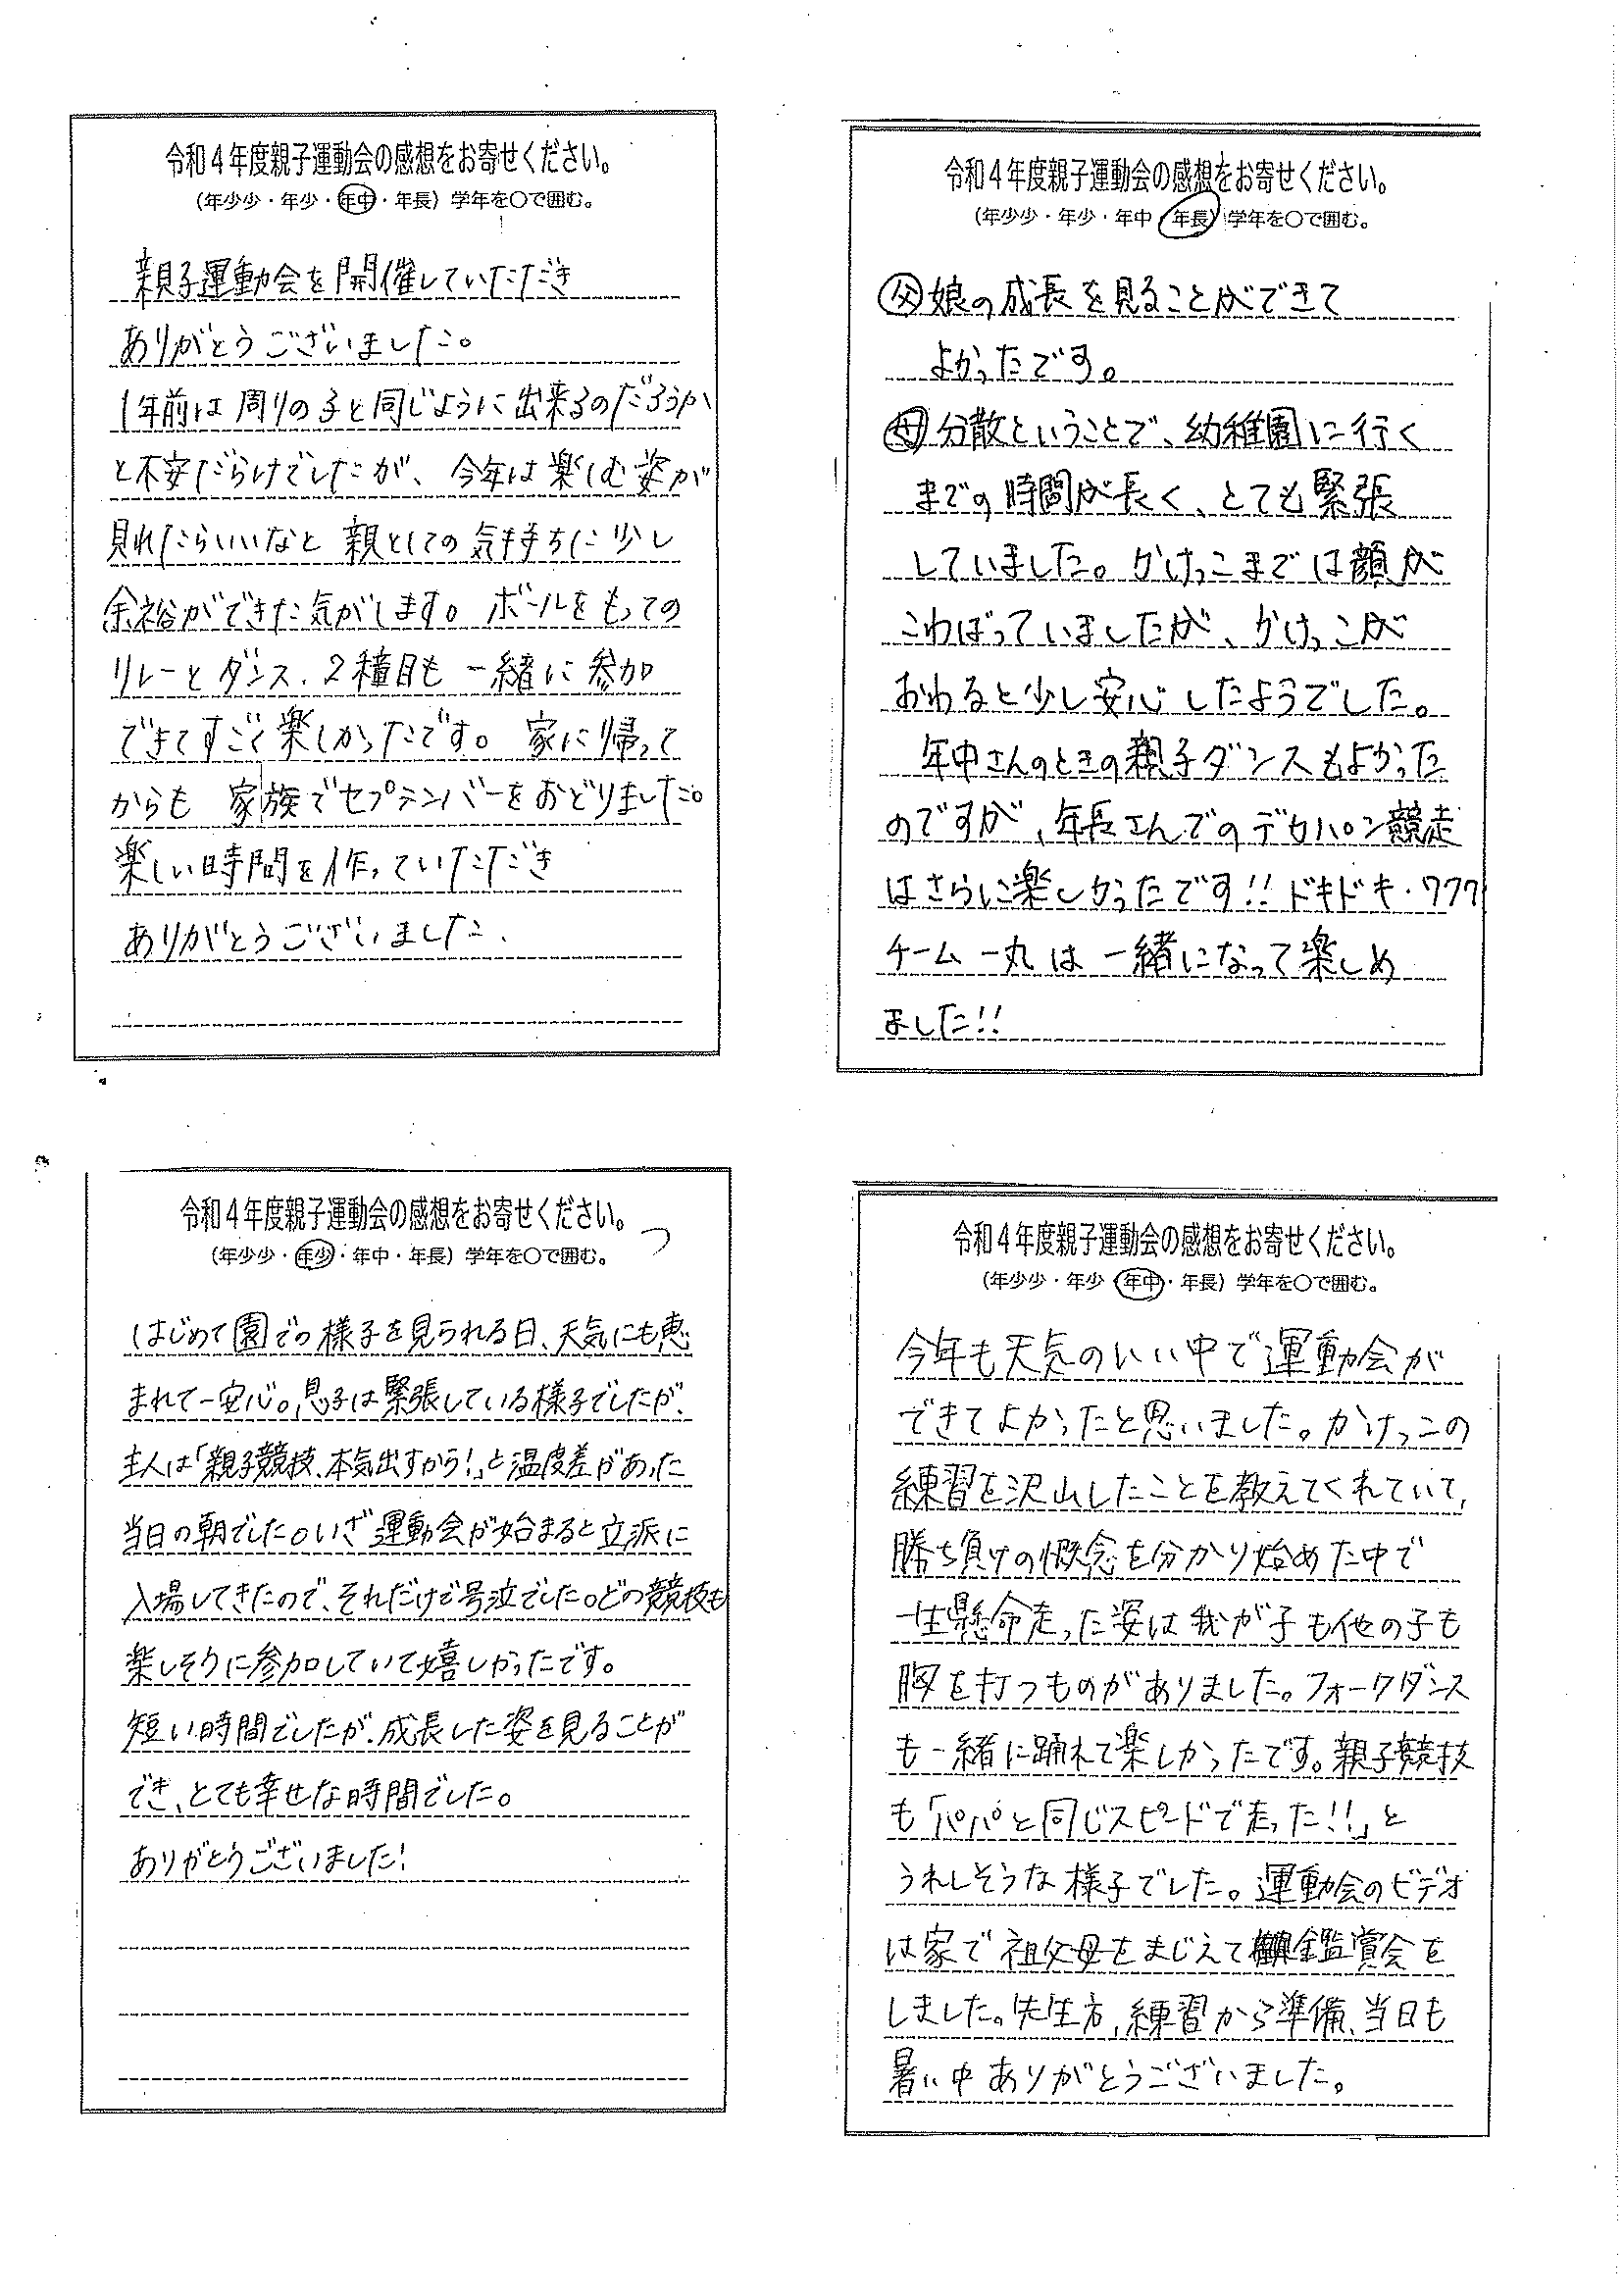 令和４年度親子運動会の感想をお寄せください。
（年少少・年少・年中・年長）学年を○で囲む。
親子運動会を開催していただき
ありがとうございました。
1年前は周りの子と同じように出来るのだろうか
と不安だらけでしたが、今年は楽しむ姿が
見れたらいいなと親としての気持ちに少し
余裕ができた気がします。ボールをもっての
リレーとダンス、2種目も一緒に参加
できてすごく楽しかったです。家に帰って
からも 家族でセプテンバーをおどりました。
楽しい時間を作っていただき
ありがとうございました。
令和４年度親子運動会の感想をお寄せください。
（年少少・年少・年中 年長）学年を○で囲む。
父 娘の成長を見ることができて
よかったです。
母 分散ということで、幼稚園に行く
までの時間が長く、とても緊張
していました。かけっこまでは顔が
こわばっていましたが、かけっこが
おわると少し安心したようでした。
年中さんのときの親子ダンスもよかった
のですが、年長さんでのデカパン競走
はさらに楽しかったです!!ドキドキ・ワクワク
チーム一丸は一緒になって楽しめ
ました!!
令和４年度親子運動会の感想をお寄せください。
（年少少・年少・年中・年長）学年を○で囲む。
はじめて園での様子を見られる日、天気にも恵
まれて一安心。息子は緊張している様子でしたが、
主人は「親子競技、本気出すから!」と温度差があった
当日の朝でした。いざ運動会が始まると立派に
入場してきたので、それだけで号泣でした。どの競技も
楽しそうに参加していて嬉しかったです。
短い時間でしたが、成長した姿を見ることが
でき、とても幸せな時間でした。
ありがとうございました!
令和４年度親子運動会の感想をお寄せください。
（年少少・年少 年中・年長）学年を○で囲む。
今年も天気のいい中で運動会が
できてよかったと思いました。かけっこの
練習を沢山したことを教えてくれていて、
勝ち負けの概念を分かり始めた中で
一生懸命走った姿は我が子も他の子も
胸を打つものがありました。フォークダンス
も一緒に踊れて楽しかったです。親子競技
も「パパと同じスピードで走った!!」と
うれしそうな様子でした。運動会のビデオ
は家で祖父母をまじえて鑑賞会を
しました。先生方、練習から準備、当日も
暑い中ありがとうございました。